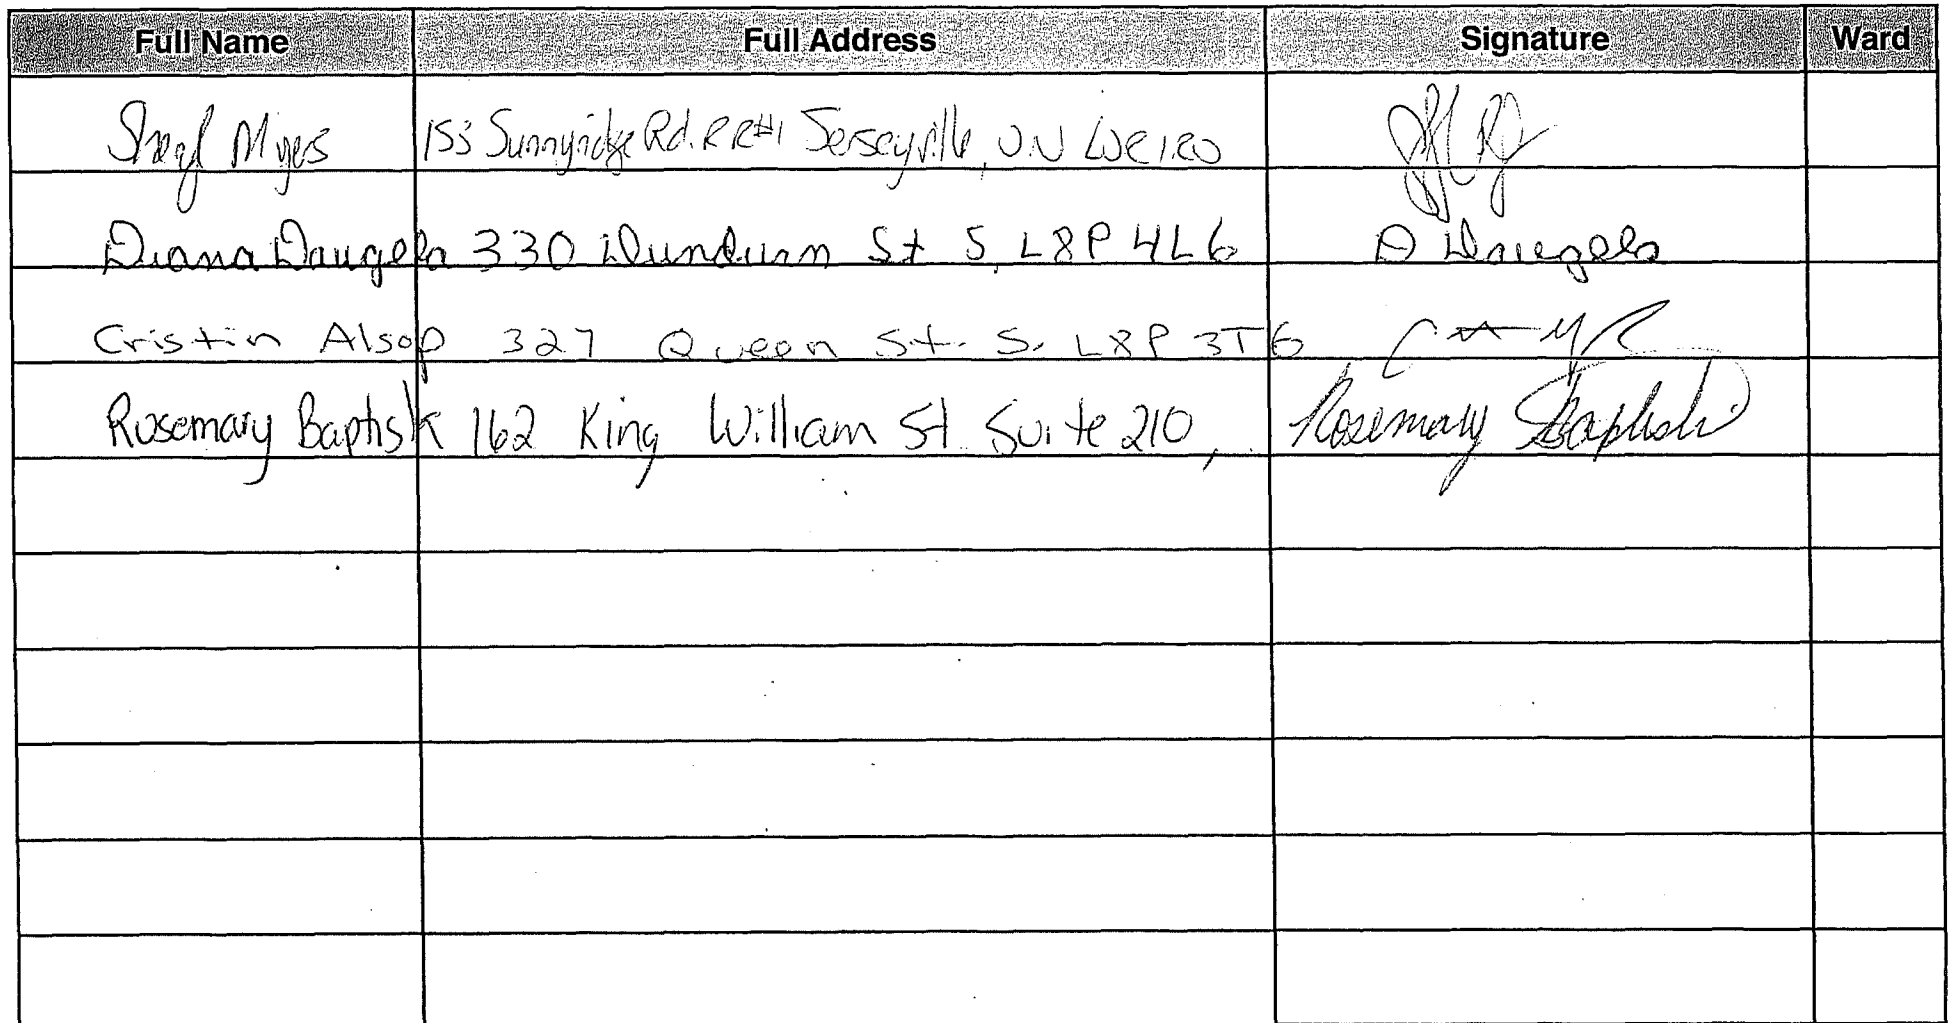 Full Name Full Address Signature Ward
Sheryl Myers 153 Sunnyridge Rd. RR#1 Jerseyville, ON L0R 1R0
Diana Daugela 330 Dundurn St S. L8P 4L6 D Daugela
Cristin Alsop 327 Queen St. S. L8P 3T6
Rosemary Baptiste 162 King William St Suite 210, Rosemary Baptiste